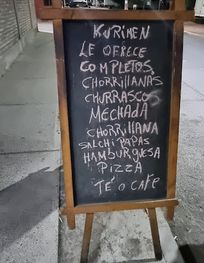 KURIMEN
LE OFRECE
COMPLETOS
CHORRILLANAS
CHURRASCOS
MECHADA
CHORRILLANA
SALCHI PAPAS
HAMBURGUESA
PIZZA
TÉ O CAFE